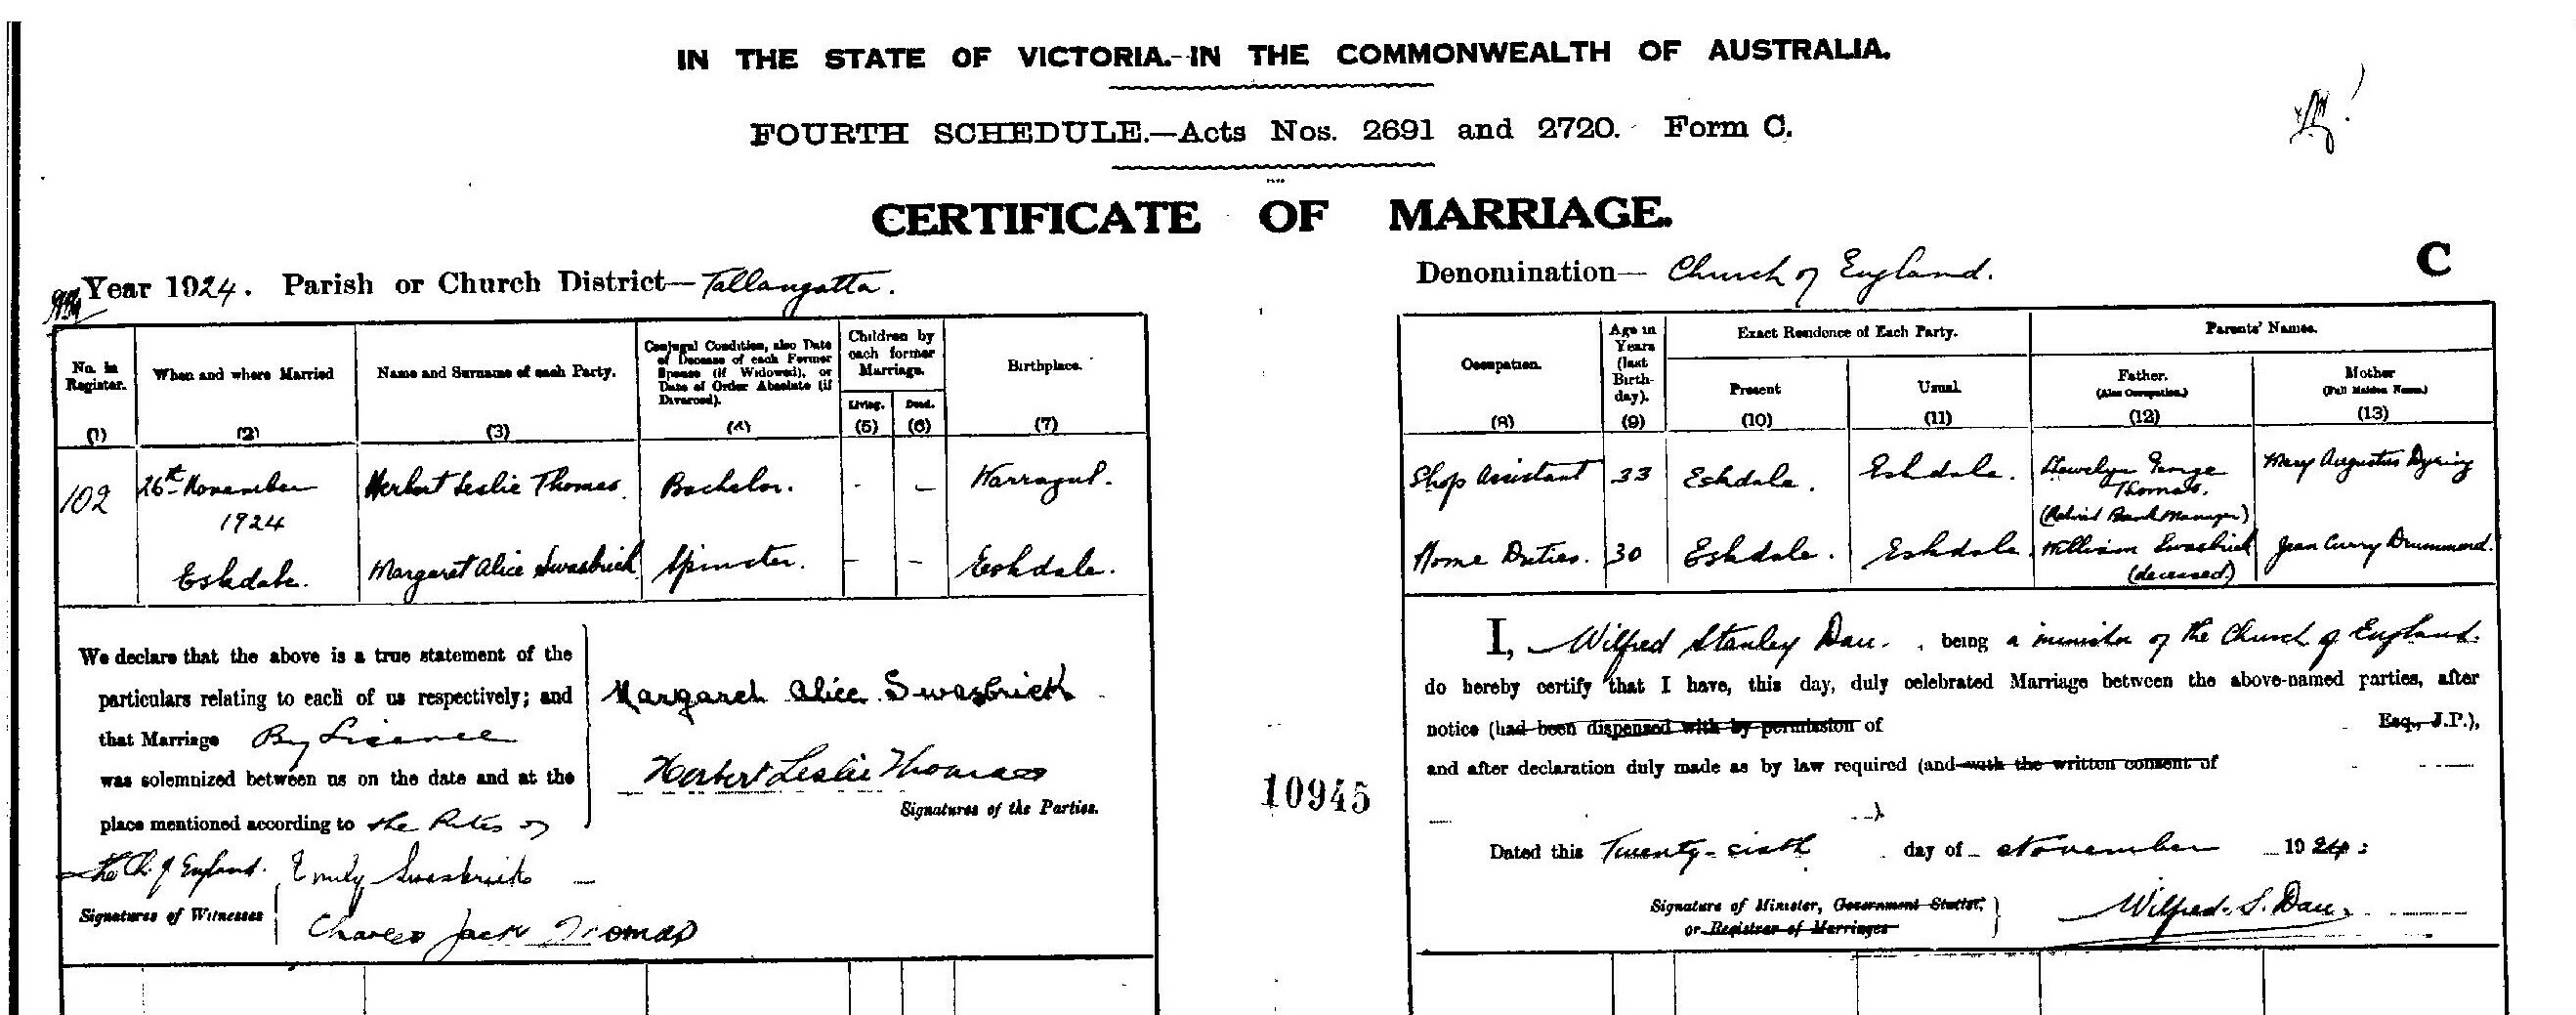 IN THE STATE OF VICTORIA.-IN THE COMMONWEALTH OF AUSTRALIA.
FOURTH SCHEDULE.—Acts Nos. 2691 and 2720. Form C.
CERTIFICATE OF MARRIAGE.
C
Year 1924. Parish or Church District—Tallangatta.
Denomination— Church of England.
No. in Register. (1)
When and where Married (2)
Name and Surname of each Party. (3)
Conjugal Condition, also Date of Decease of each Former Spouse (if Widowed), or Date of Order Absolute (if Divorced). (4)
Children by each former Marriage.
Living. (5)
Dead. (6)
Birthplace. (7)
Occupation. (8)
Age in Years (last Birth-day). (9)
Exact Residence of Each Party.
Present (10)
Usual. (11)
Parents' Names.
Father. (Also Occupation.) (12)
Mother (Full Maiden Name.) (13)
102
26th November 1924
Eskdale.
Herbert Leslie Thomas. Bachelor. - - Warragul.
Shop Assistant 33 Eskdale. Eskdale. Llewelyn George Thomas. (Retired Bank Manager) Mary Augustus Dyring
Margaret Alice Swasbrick Spinster. - - Eskdale.
Home Duties. 30 Eskdale. Eskdale. William Swasbrick (deceased) Jean Curry Drummond.
We declare that the above is a true statement of the
particulars relating to each of us respectively; and
that Marriage By Licence
was solemnized between us on the date and at the
place mentioned according to the Rites of
the Ch. of England.
Margaret Alice Swasbrick
Herbert Leslie Thomas
Signatures of the Parties.
Emily Swasbrick
Signatures of Witnesses
Charles Jack Thomas
10945
I, Wilfred Stanley Dau. , being a minister of the Church of England.
do hereby certify that I have, this day, duly celebrated Marriage between the above-named parties, after
notice (had been dispensed with by permission of Esq., J.P.),
and after declaration duly made as by law required (and with the written consent of
).
Dated this Twenty-sixth day of November 1924:
Signature of Minister, Government Statist,
or Registrar of Marriages
Wilfred. S. Dau.